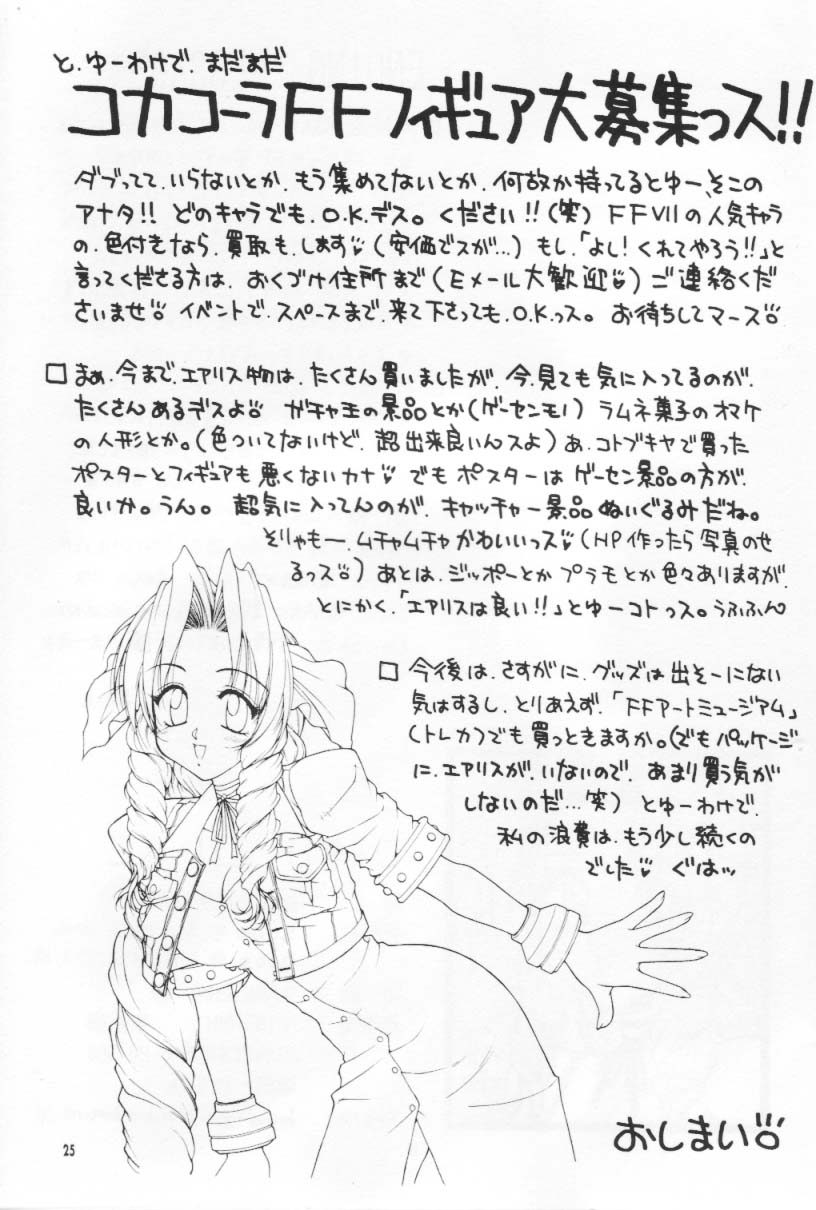 と、ゆーわけで、まだまだ
コカコーラFFフィギュア大募集っス!!
ダブってて、いらないとか、もう集めてないとか、何故か持ってるとゆー、そこの
アナタ!! どのキャラでも、O.K.デス。ください!!(笑) FFVIIの人気キャラ
の、色付きなら、買取も、します♡(安価でスが…) もし、「よし!くれてやろう!!」と
言ってくださる方は、おくづけ住所まで(Eメール大歓迎)ご連絡くだ
さいませ イベントで、スペースまで、来て下さっても、O.K.っス。 お待ちしてマース
□ まぁ、今まで、エアリス物は、たくさん買いましたが、今、見ても気に入ってるのが、
たくさんあるデスよ ガチャ王の景品とか(ゲーセンモノ) ラムネ菓子のオマケ
の人形とか。(色ついてないけど、超出来良いんスよ) あ、コトブキヤで買った
ポスターとフィギュアも悪くないカナ♡ でもポスターはゲーセン景品の方が、
良いか。うん。 超気に入ってんのが、キャッチャー景品ぬいぐるみだね。
そりゃもー、ムチャムチャかわいいっス♡(HP作ったら写真のせ
るっス) あとは、ジッポーとかプラモとか色々ありますが、
とにかく、「エアリスは良い!!」とゆーコトっス。うふふん
□ 今後は、さすがに、グッズは出そーにない
気はするし、とりあえず、「FFアートミュージアム」
(トレカ)でも買っときますか。(でもパッケージ
に、エアリスが、いないので、あまり買う気が
しないのだ…笑) とゆーわけで、
私の浪費は、もう少し続くの
でした♡ ぐはッ
おしまい
25